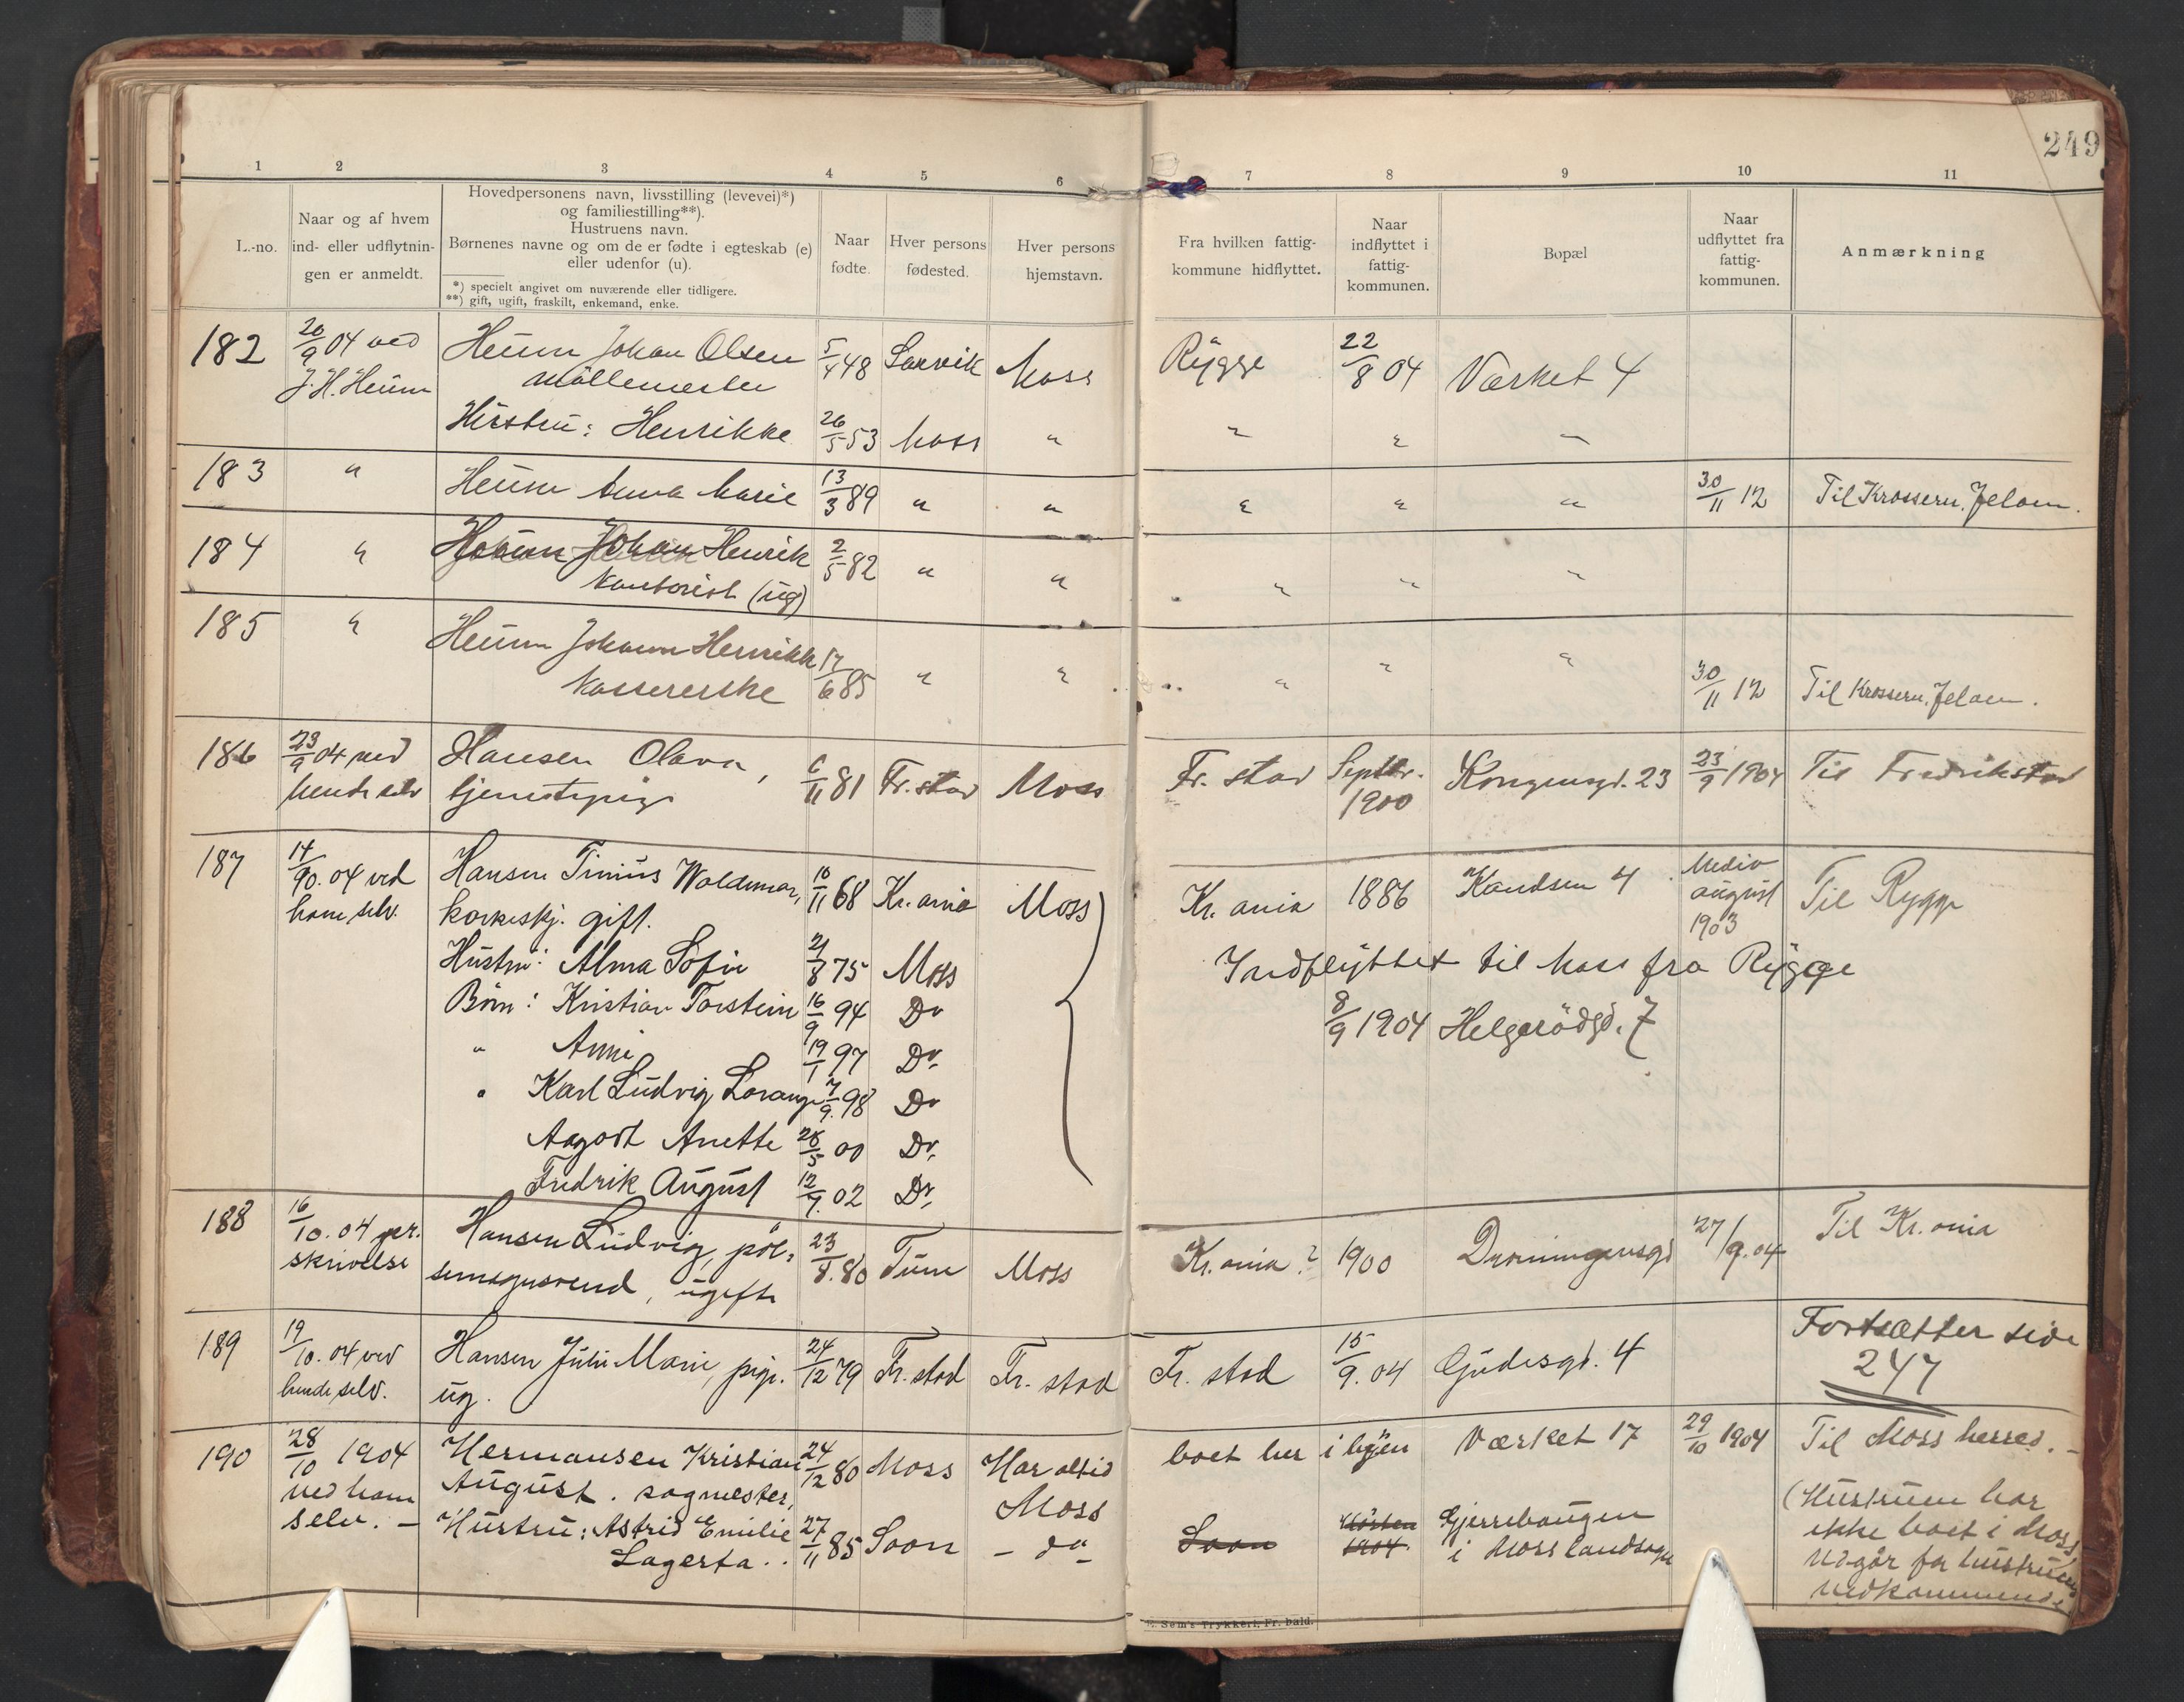 249
1 2 3 4 5 6 7 8 9 10 11
L.-no.
Naar og af hvem
ind- eller udflytnin-
gen er anmeldt.
Hovedpersonens navn, livsstilling (levevei)*)
og familiestilling**).
Hustruens navn.
Børnenes navne og om de er fødte i egteskab (e)
eller udenfor (u).
*) specielt angivet om nuværende eller tidligere.
**) gift, ugift, fraskilt, enkemand, enke.
Naar
fødte.
Hver persons
fødested.
Hver persons
hjemstavn.
Fra hvilken fattig-
kommune hidflyttet.
Naar
indflyttet i
fattig-
kommunen.
Bopæl
Naar
udflyttet fra
fattig-
kommunen.
Anmærkning
182 20/9 04 ved Heum Johan Olsen 5/4 48 Larvik Moss Rygge 22/8 04 Værket 4
J. H. Heum Möllemester
Hustru: Henrikke 26/5 53 Moss " " " "
183 " Heum Anna Marie 13/3 89 " " " " " 30/11 12 Til Krossern. Jeløen.
184 " Heum Johan Henrik 2/5 82 " " " " "
Kontorist (ug)
185 " Heum Johanne Henrikke 17/6 85 " " " " " 30/11 12 Til Krossern. Jeløen.
Kassererske
186 23/9 04 ved Hansen Olava, 6/11 81 Fr. stad Moss Fr. stad Septbr. Kongensgd. 23 23/9 1904 Til Fredrikstad
hende selv tjenestepige 1900
187 14/10. 04 ved Hansen Tinius Waldemar, 10/11 68 Kr. ania Moss Kr. ania 1886 4 Medio august 1903 Til Rygge
ham selv. korkeskj. gift.
Hustru: Alma Sofie 21/8 75 Moss Indflyttet til Moss fra Rygge
Börn: Kristian Torstein 16/9 94 Do 8/9 1904 Helgerödgd. 7
" Anni 19/1 97 Do.
" Karl Ludvig Lorang 7/9. 98 Do
Aagodt Anette 28/5 00 Do.
Fredrik August 12/9. 02 Do.
188 16/10. 04 per. Hansen Ludvig, pöl- 23/8. 80 Tune Moss Kr. ania? 1900 Dronningensgd 27/9. 04 Til Kr. ania
skrivelse semagersvend, ugift
189 19/10. 04 ved Hansen Juli Marie, pige. 24/12 79 Fr. stad Fr. stad Fr. stad 15/9. 04 Gudesgd. 4 Fortsætter side
hende selv. ug. 247
190 28/10 1904 Hermansen Kristian 24/12 80 Moss Har altid boet her i byen Værket 17 29/10 1904 Til Moss herred. -
ved ham August. sagmester, Moss
selv. - Hustru: Astrid Emilie 27/11 85 Soon - do - Soon Hösten 1904. Gjerrebaugen
Lagerta. i Moss landsogn
(Hustruen har
ikke boet i Moss
Udgår for hustruens
vedkommende
E. Sem's Trykkeri, Fr. hald.